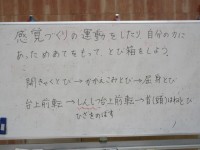 感覚づくりの運動をしたり、自分の力に
あっためあてをもって、とび箱をしよう。
開きゃくとび→かかえこみとび→屈身とび
台上前転→しんしつ台上前転→首(頭)はねとび
ひざをのばす